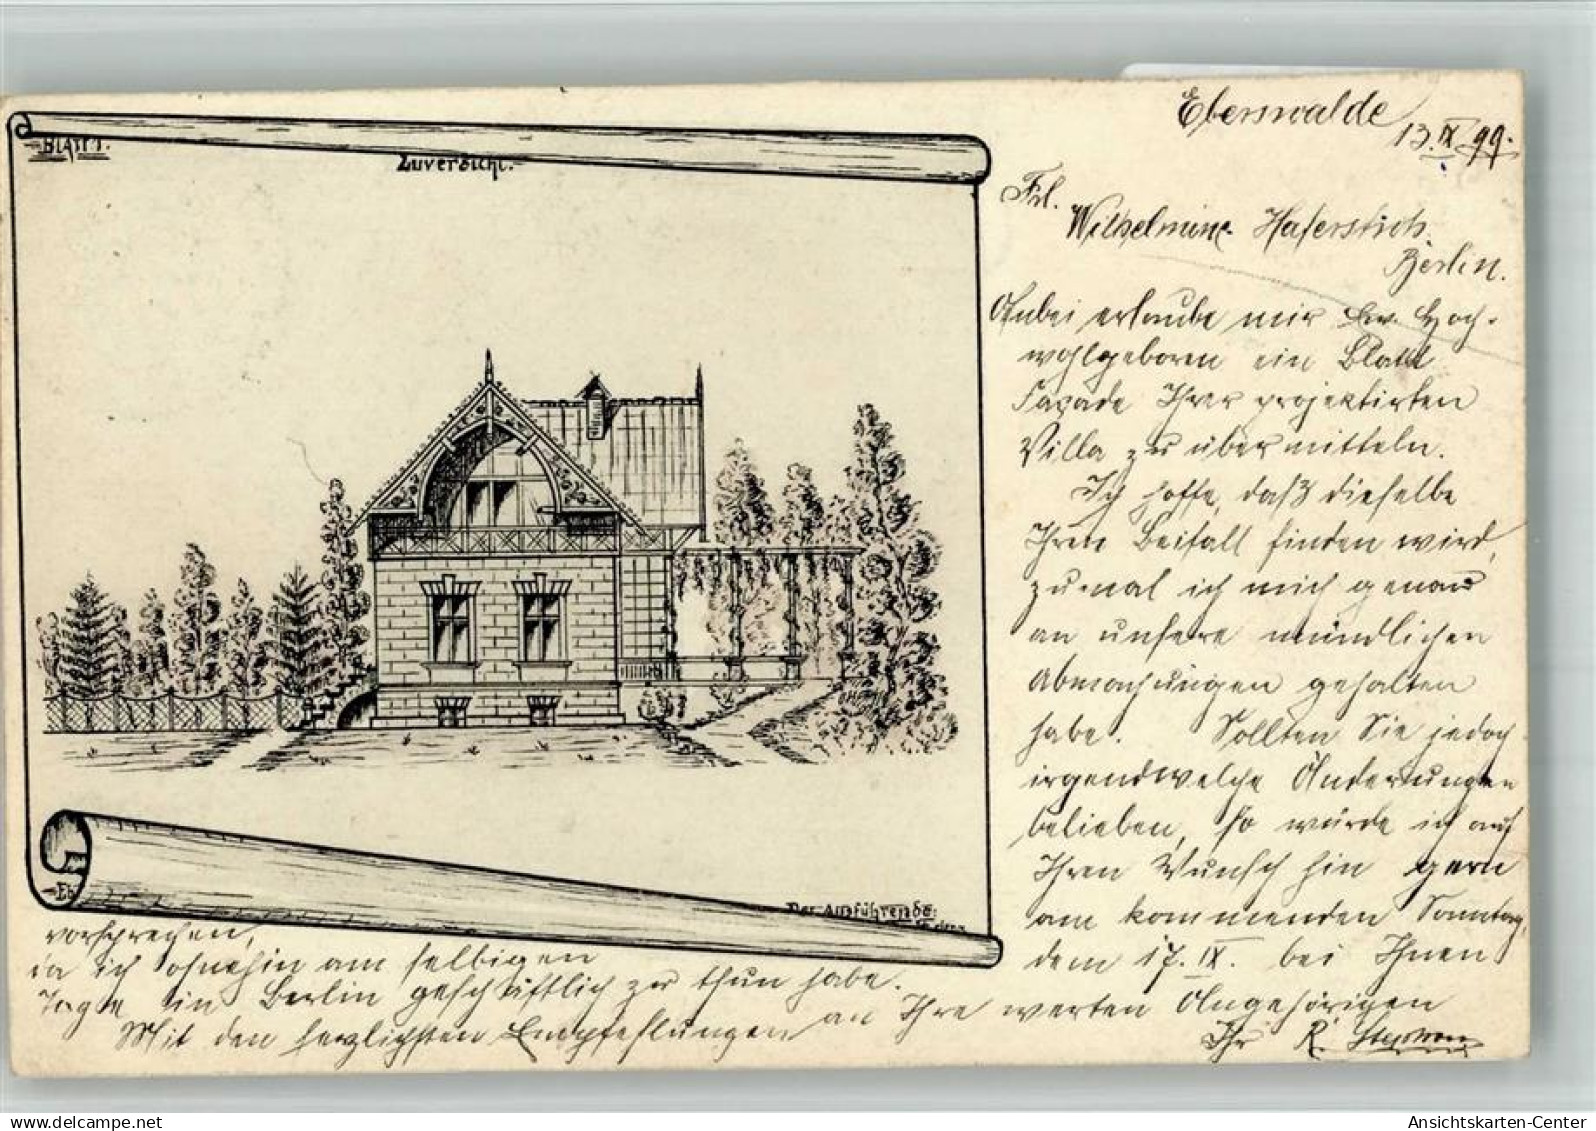 Blatt 1.
Zuversicht.
Der Ausführende:
Eberswalde
13. IX 99.
Frl.
Wilhelmine Haferstich
Berlin.
Anbei erlaube mir Ew. Hoch-
wohlgeboren ein Blatt
Façade Ihrer projektirten
Villa zu übermitteln.
Ich hoffe, daß dieselbe
Ihren Beifall finden wird,
zumal ich mich genau
an unsere mündlichen
Abmachungen gehalten
habe. Sollten Sie jedoch
irgendwelche Änderungen
belieben, so würde ich auf
Ihren Wunsch hin gern
am kommenden Sonntag,
dem 17. IX. bei Ihnen
vorsprechen,
da ich ohnehin am selbigen
Tage in Berlin geschäftlich zu thun habe.
Mit den herzlichsten Empfehlungen an Ihre werten Angehörigen
Ihr R.
www.delcampe.net
Ansichtskarten-Center